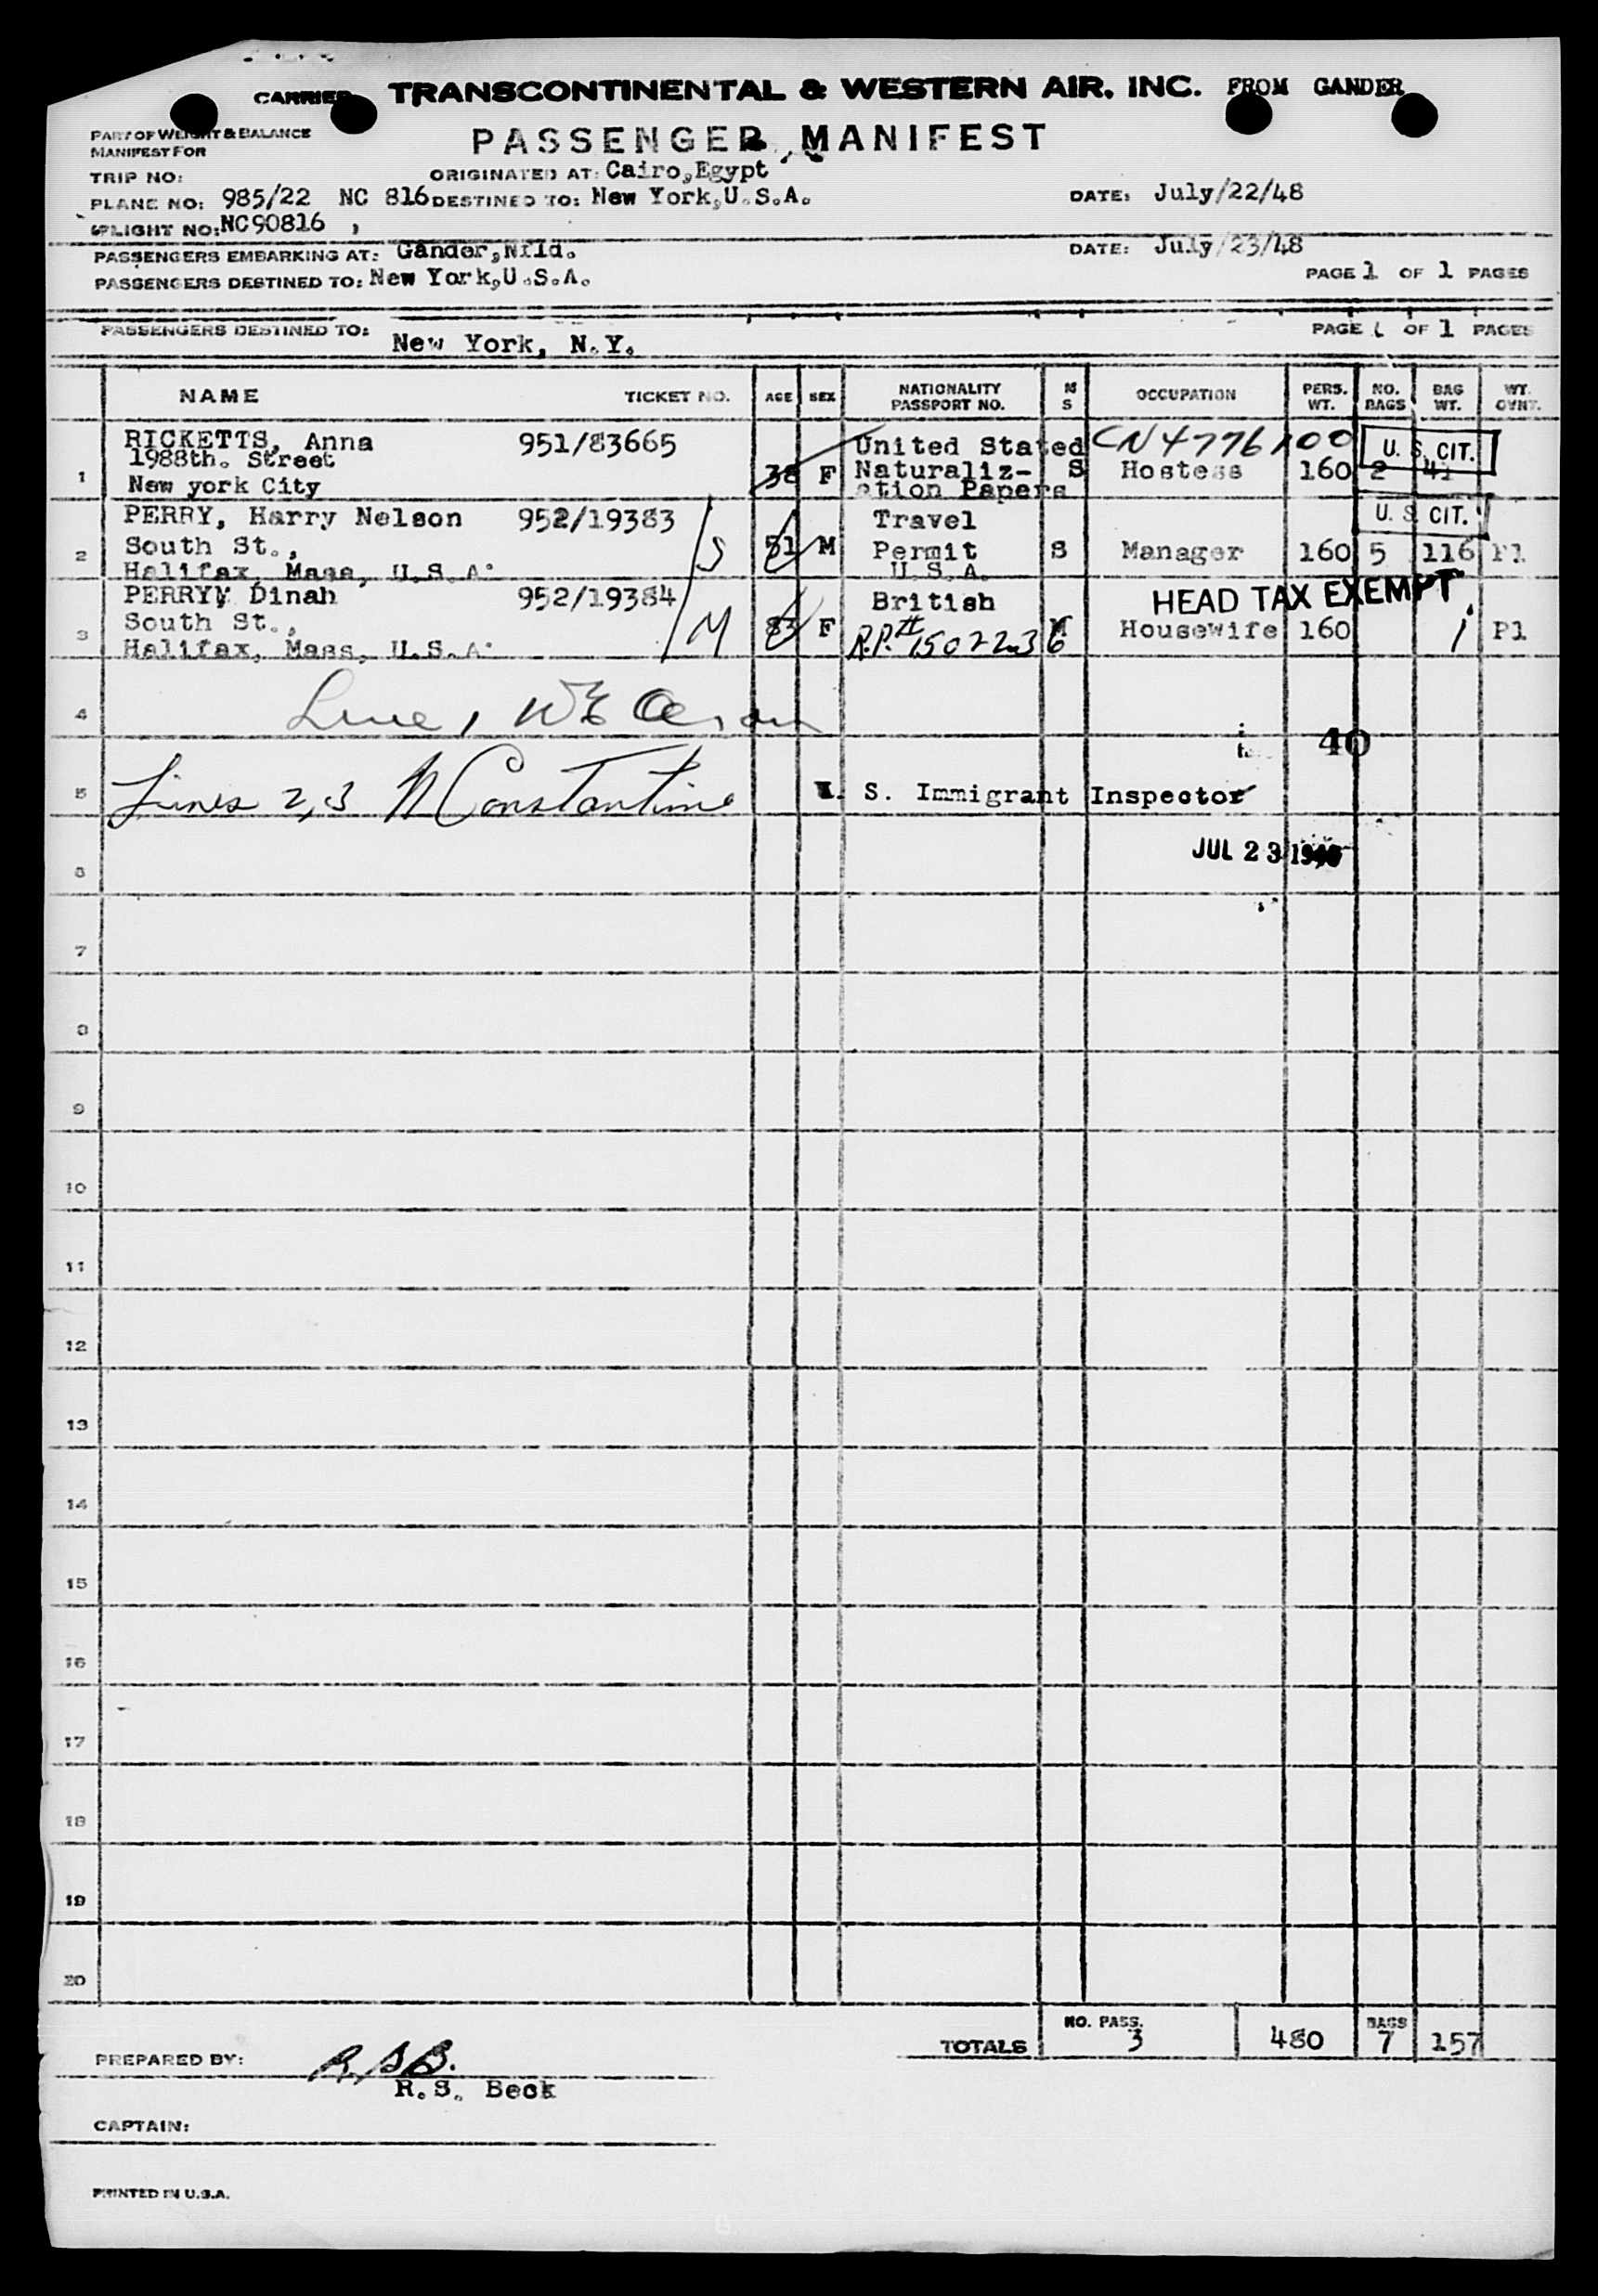 CARRIER TRANSCONTINENTAL & WESTERN AIR, INC. FROM GANDER
PART OF WEIGHT & BALANCE
MANIFEST FOR
PASSENGER MANIFEST
TRIP NO: ORIGINATED AT: Cairo,Egypt
PLANE NO: 985/22 NC 816 DESTINED TO: New York,U.S.A. DATE: July/22/48
FLIGHT NO: NC90816 ,
PASSENGERS EMBARKING AT: Gander,Nfld. DATE: July/23/48
PASSENGERS DESTINED TO: New York,U.S.A. PAGE 1 OF 1 PAGES
PASSENGERS DESTINED TO: New York, N.Y. PAGE 1 OF 1 PAGES
NAME TICKET NO. AGE SEX NATIONALITY PASSPORT NO. M S OCCUPATION PERS. WT. NO. BAGS BAG WT. WT. OVNT.
RICKETTS, Anna 951/83665 United Stated CN4776100 U. S. CIT.
1988th. Street
1 38 F Naturaliz- S Hostess 160 2 41
New york City ation Papers
PERRY, Harry Nelson 952/19383 Travel U. S. CIT.
2 South St., S 51 M Permit S Manager 160 5 116 P1
Halifax, Mass, U.S.A. U.S.A.
PERRYY Dinah 952/19384 British HEAD TAX EXEMPT
3 South St., M F R.P.# 1502236 Housewife 160 P1
Halifax, Mass, U.S.A.
4
40
5 Lines 2,3 N Constantine S. Immigrant Inspector
JUL 23
6
7
8
9
10
11
12
13
14
15
16
17
18
19
20
TOTALS NO. PASS. 3 480 BAGS 7 157
PREPARED BY: R.S.B.
R.S. Beck
CAPTAIN:
PRINTED IN U.S.A.